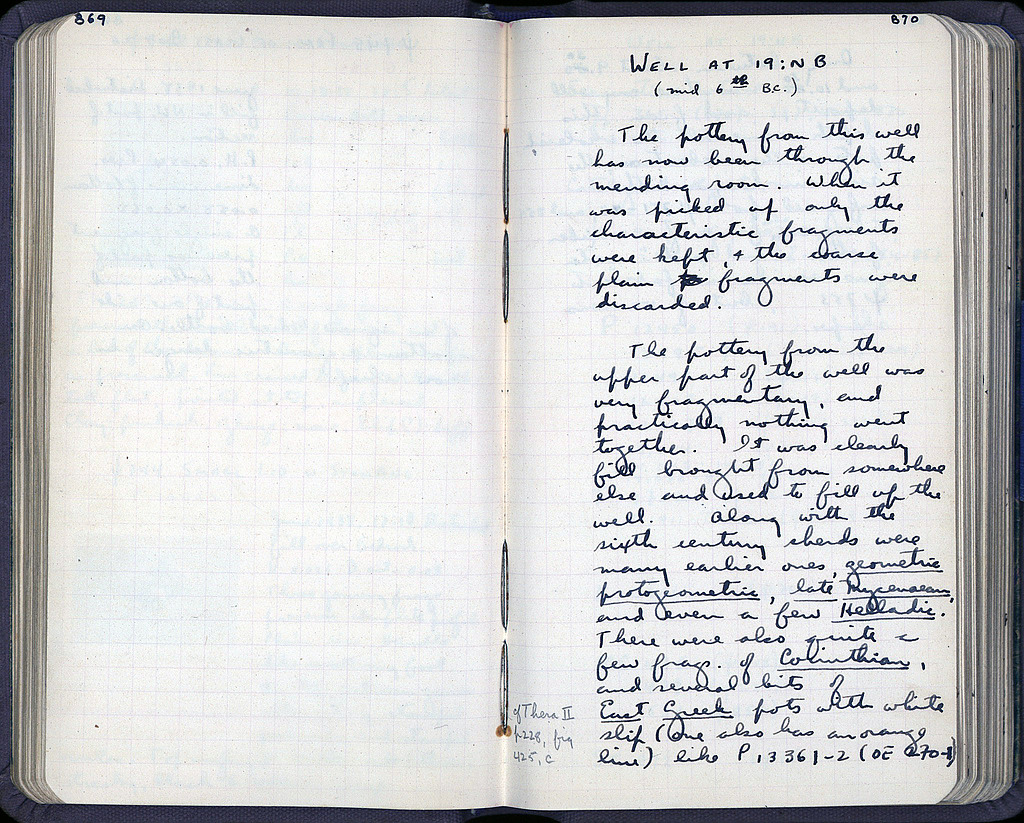 869
870
WELL AT 19:NB
(mid 6th B.C.)
The pottery from this well
has now been through the
mending room. When it
was picked up only the
characteristic fragments
were kept, & the coarse
plain fragments were
discarded.
The pottery from the
upper part of the well was
very fragmentary, and
practically nothing went
together. It was clearly
fill brought from somewhere
else and used to fill up the
well. Along with the
sixth century sherds were
many earlier ones, geometric
protogeometric, late Mycenaean,
and even a few Helladic.
There were also quite a
few frags. of Corinthian,
and several bits of
East Greek pots with white
slip (one also has an orange
line) like P 13361-2 (OE 270-1)
cf Thera II
p228, fig
425, c